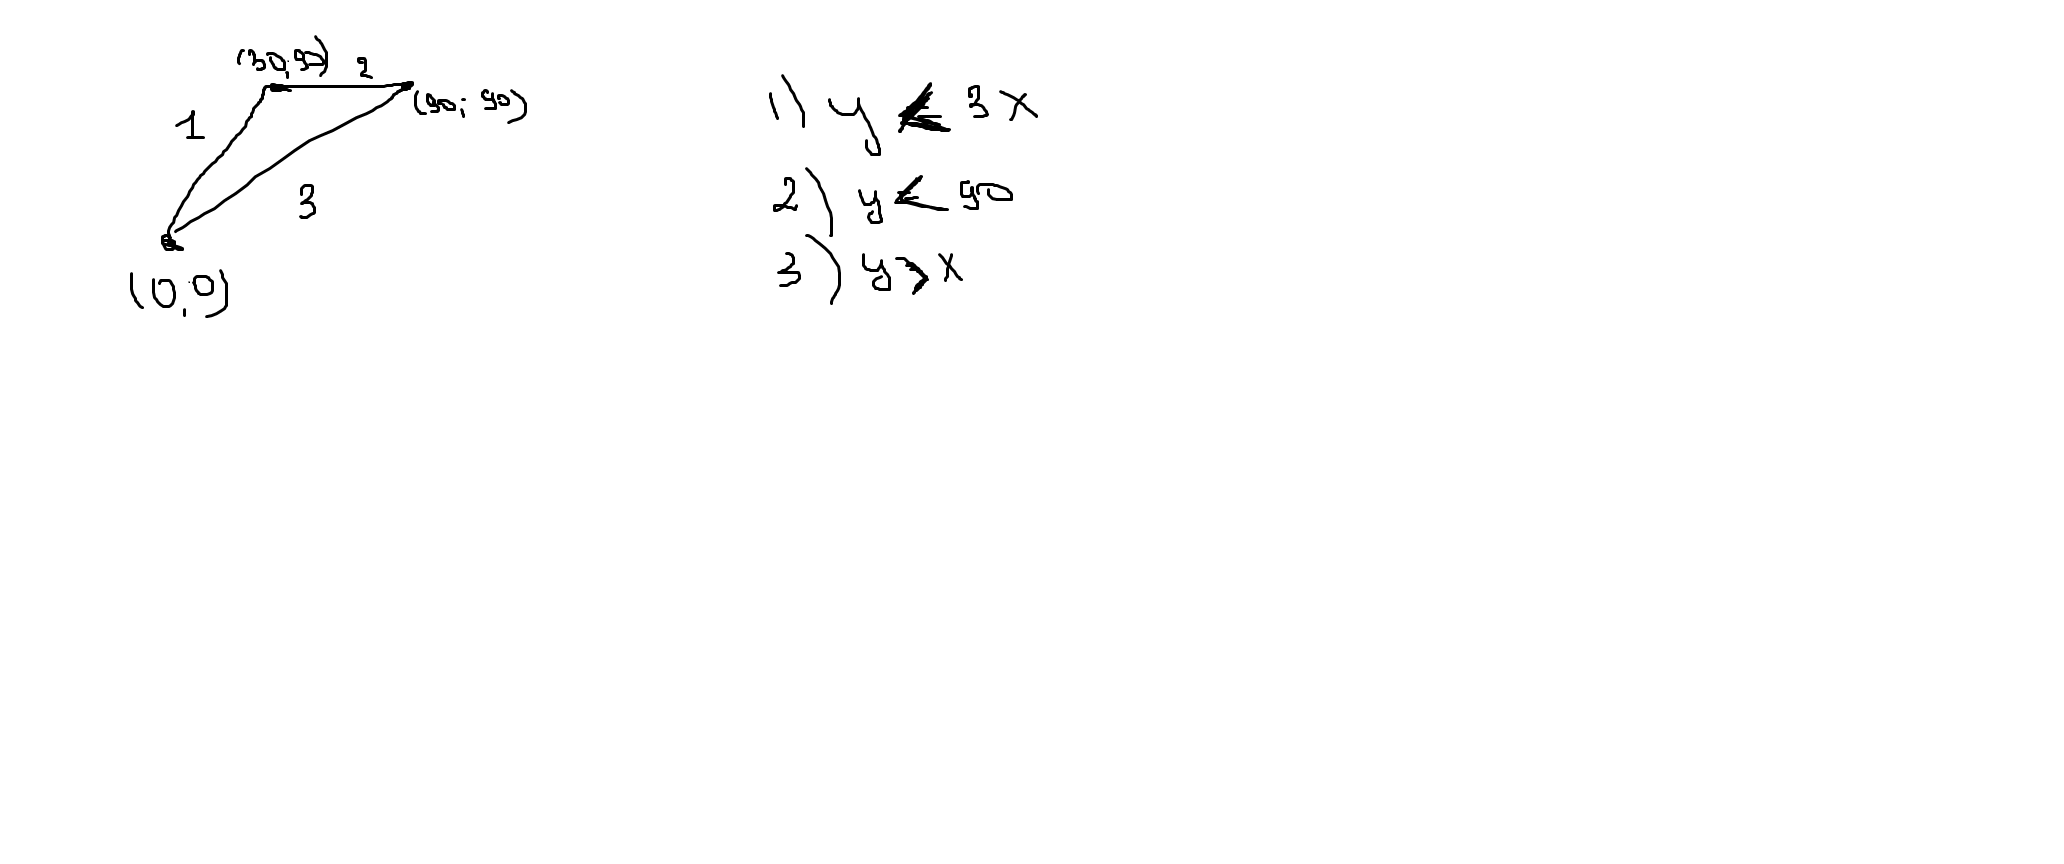 (30;90)
2
(90; 90)
1
3
(0;0)
1) y < 3x
2) y < 90
3) y > x